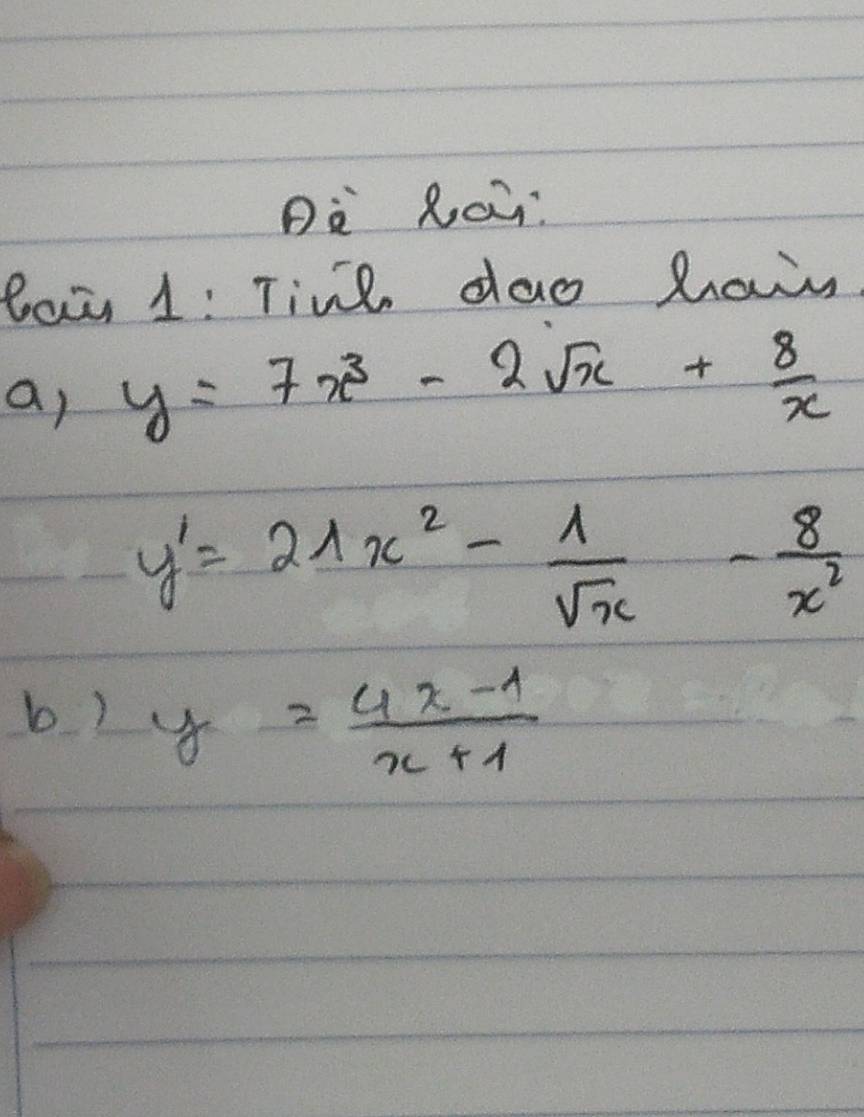 Đề bài:
bài 1: Tính đạo hàm.
a, y = 7x³ - 2√x + 8/x
y' = 21x² - 1/√x - 8/x²
b.) y = 4x-1/x+1